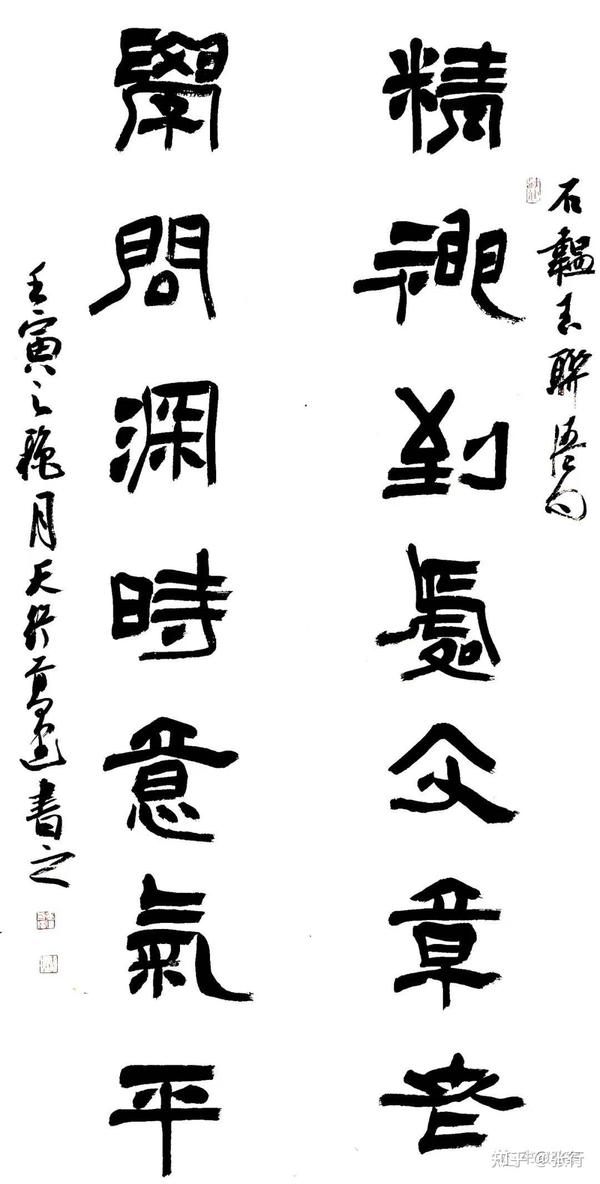 石韞玉聯語句
精神到處文章老
學問深時意氣平
壬寅之龝月天行書之
知乎 @张行